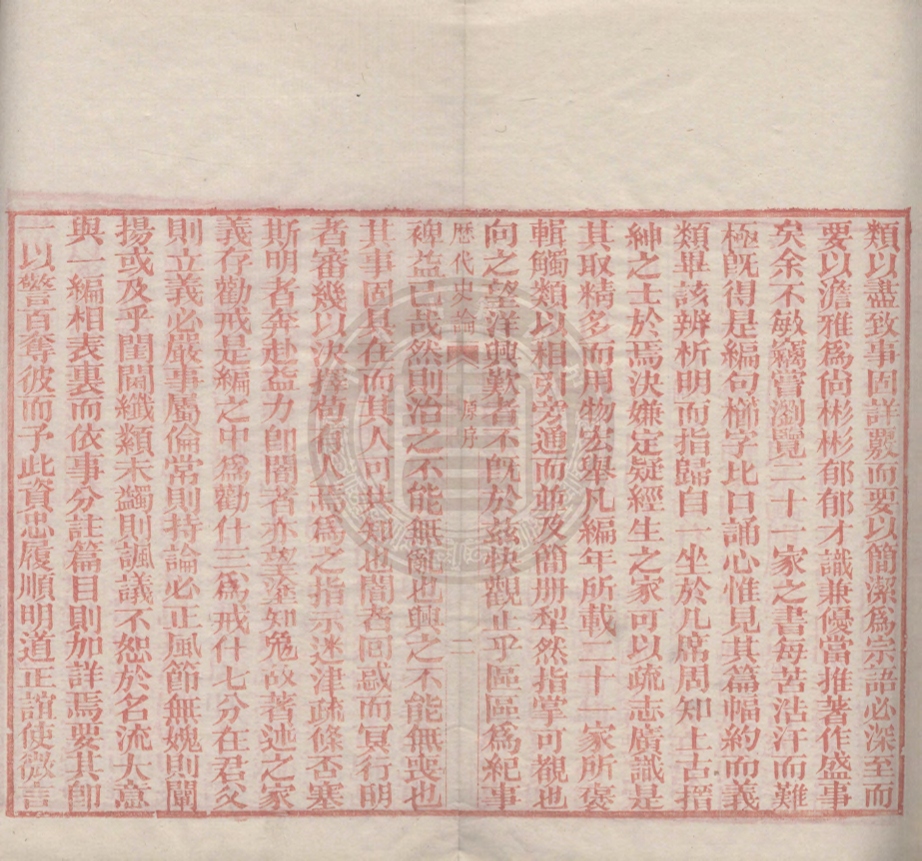 類以盡致事固詳覈而要以簡潔爲宗語必深至而
要以澹雅爲尙彬彬郁郁才識兼優當推著作盛事
矣余不敏竊嘗瀏覽二十一家之書每苦浩汗而難
極旣得是編句櫛字比口誦心惟見其篇幅約而義
類畢該辨析明而指歸自一坐於几席周知上古搢
紳之士於焉決嫌定疑經生之家可以疏志廣識是
其取精多而用物宏舉凡編年所載二十一家所褒
輯觸類以相引旁通而並及簡册犁然指掌可觀也
向之望洋興歎者不旣於兹快觀止乎區區爲紀事
歷代史論 原序 二
裨益已哉然則治之不能無亂也興之不能無喪也
其事固具在而其人可共知也闇者回惑而冥行明
者審幾以決擇茍有人焉爲之指示迷津疏條否塞
斯明者奔赴益力卽闇者亦望塗知免故著述之家
義存勸戒是編之中爲勸什三爲戒什七分在君父
則立義必嚴事屬倫常則持論必正風節無媿則闡
揚或及乎閨閫纖纇未蠲則諷議不恕於名流大意
與一編相表裏而依事分註篇目則加詳焉要其卽
一以警百奪彼而予此資忠履順明道正誼使微言